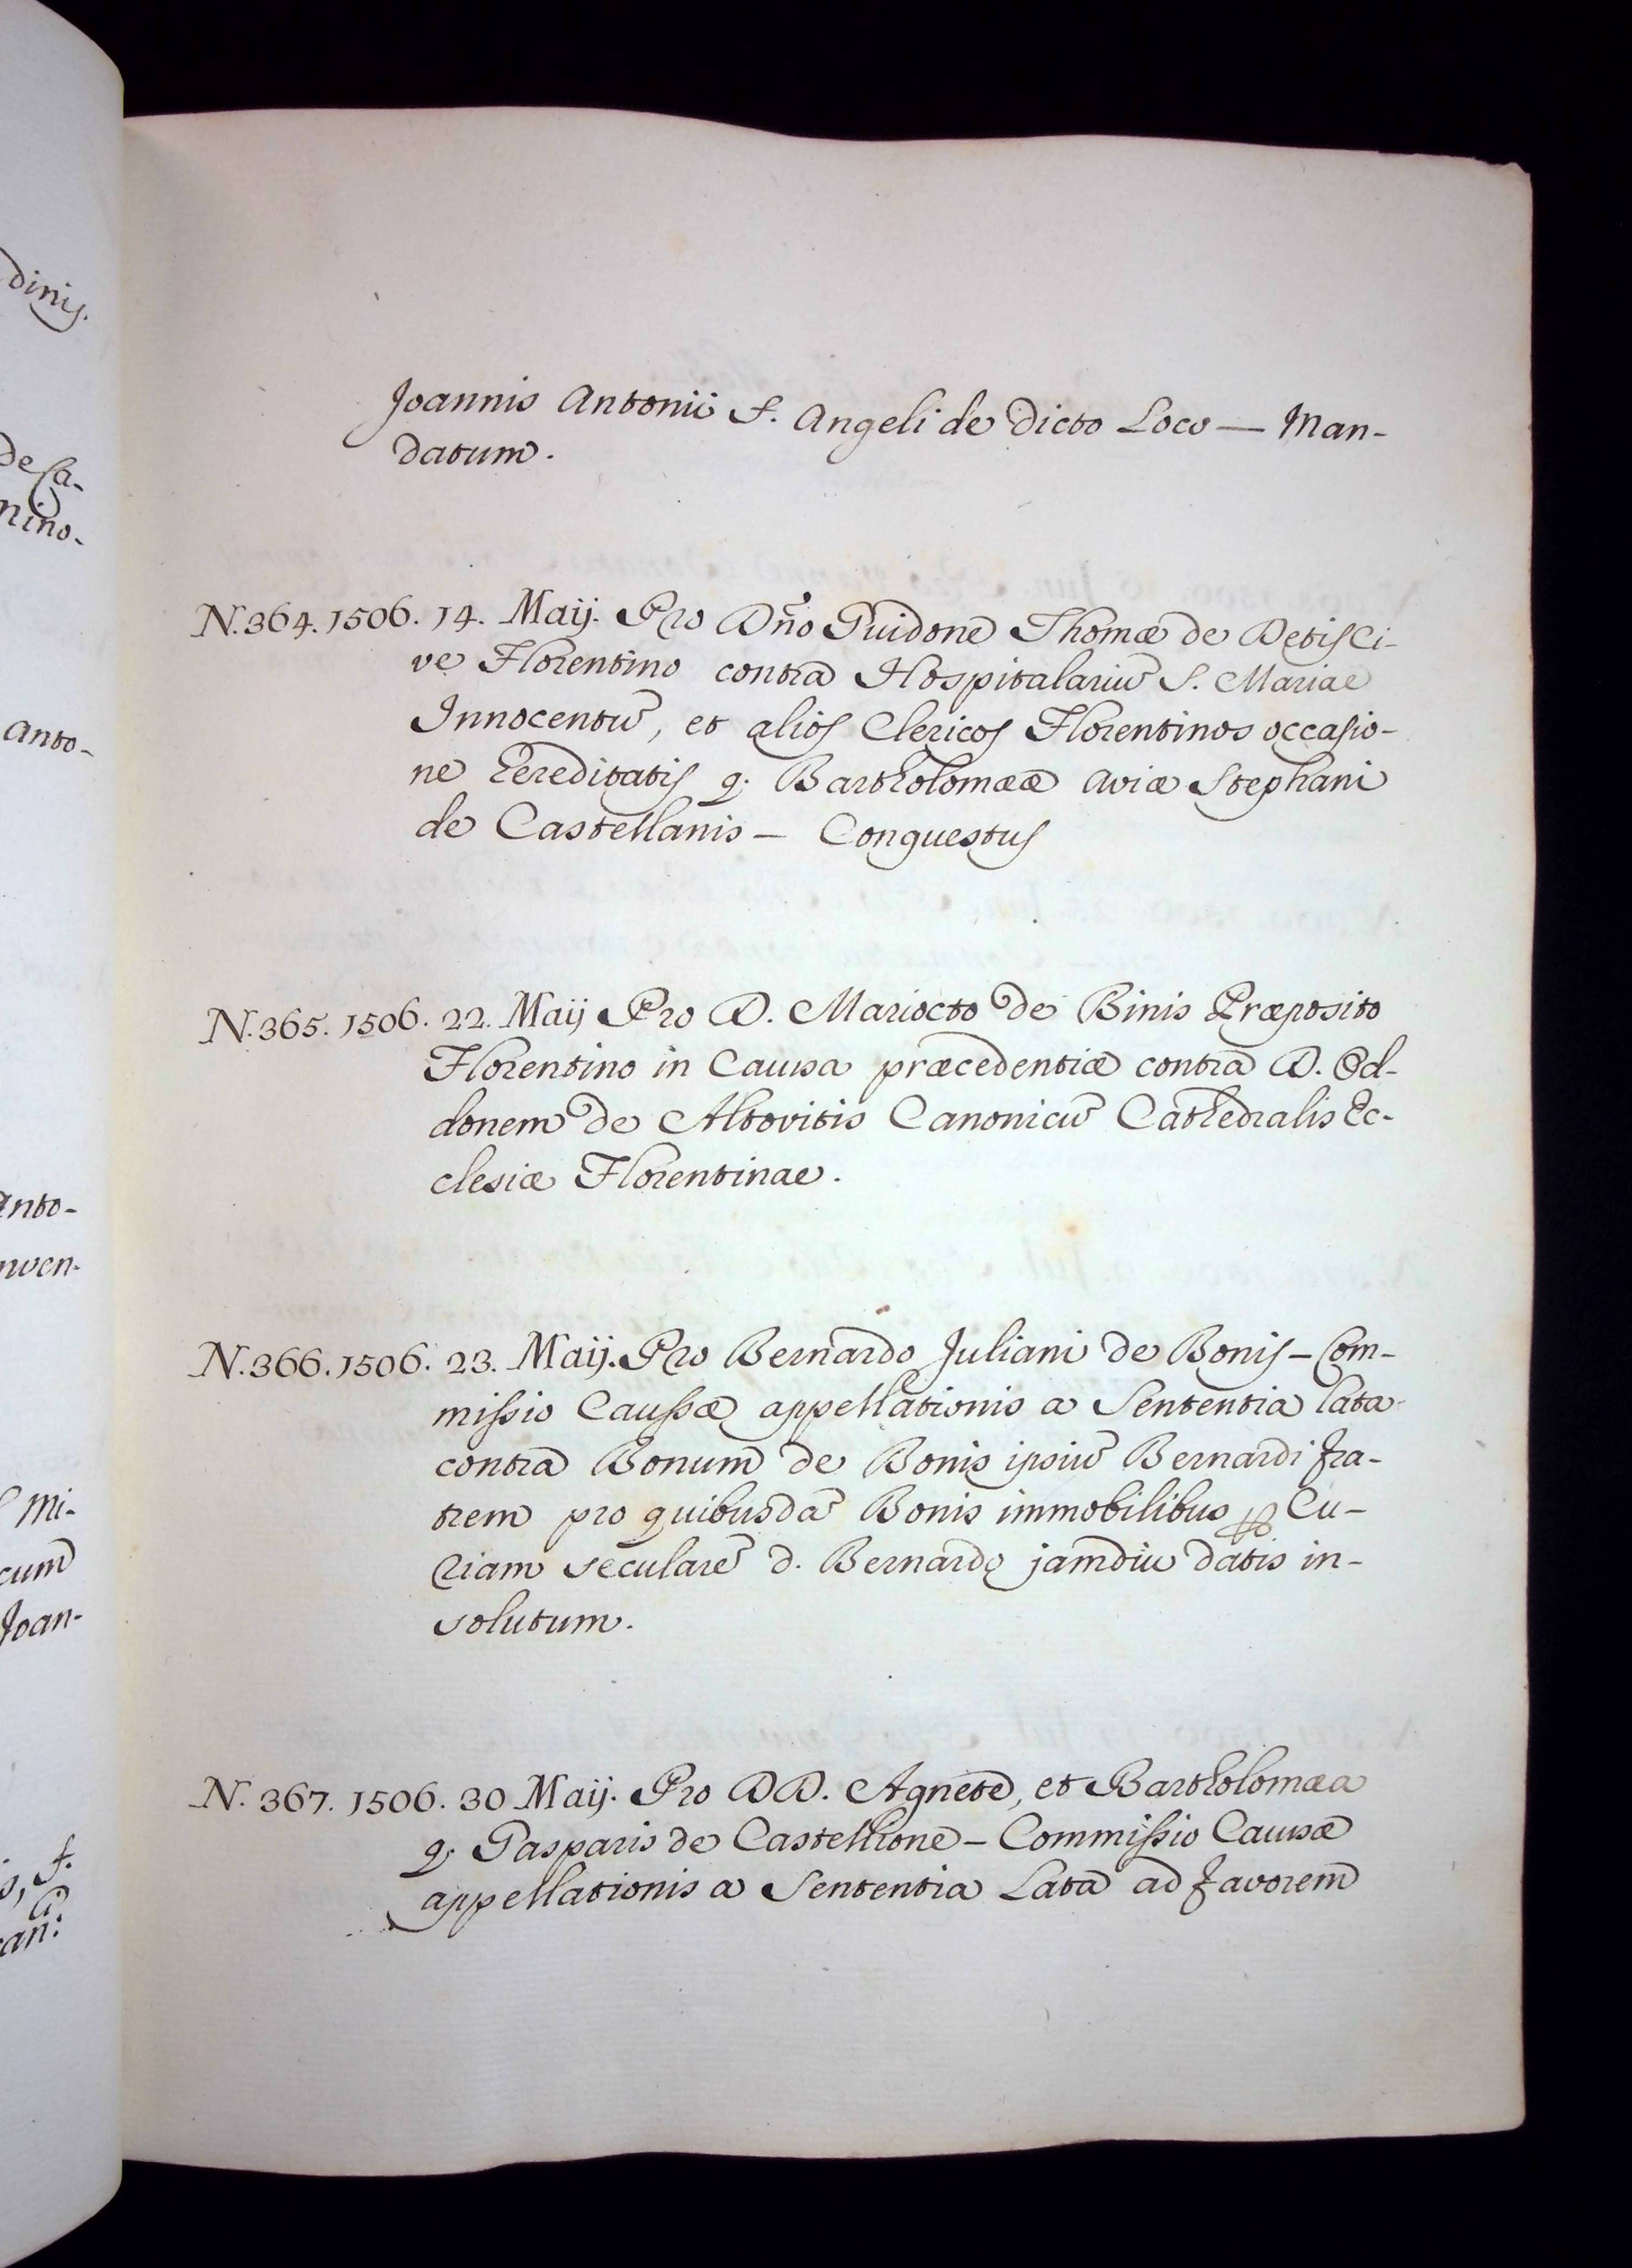 dinis.
de Ca-
nino-
Anto-
Anto-
nven-
Mi-
cum
Joan-
an:
Joannis Antonii f. Angeli de dicto Loco — Man-
datum.
N. 364. 1506. 14. Maij. Pro Dño Guidone Thomæ de Detis Ci-
ve Florentino contra Hospitalariũ S. Mariae
Innocentũ, et alios Clericos Florentinos occasio-
ne Hereditatis q. Bartholomææ Aviæ Stephani
de Castellanis — Conquestus
N. 365. 1506. 22. Maij Pro D. Mariocto de Binis Præposito
Florentino in Causa præcedentiæ contra D. Od-
donem de Altovitis Canonicũ Cathedralis Ec-
clesiæ Florentinae.
N. 366. 1506. 23. Maij. Pro Bernardo Juliani de Bonis — Com-
missio Caussæ appellationis a Sententia lata
contra Bonum de Bonis ipsiũ Bernardi fra-
trem pro quibusdã Bonis immobilibus ꝑ Cu-
riam secularẽ d. Bernardo jamdiu datis in-
solutum.
N. 367. 1506. 30 Maij. Pro DD. Agnete, et Bartholomæa
q. Gasparis de Castellione — Commissio Causæ
appellationis a Sententia Lata ad favorem